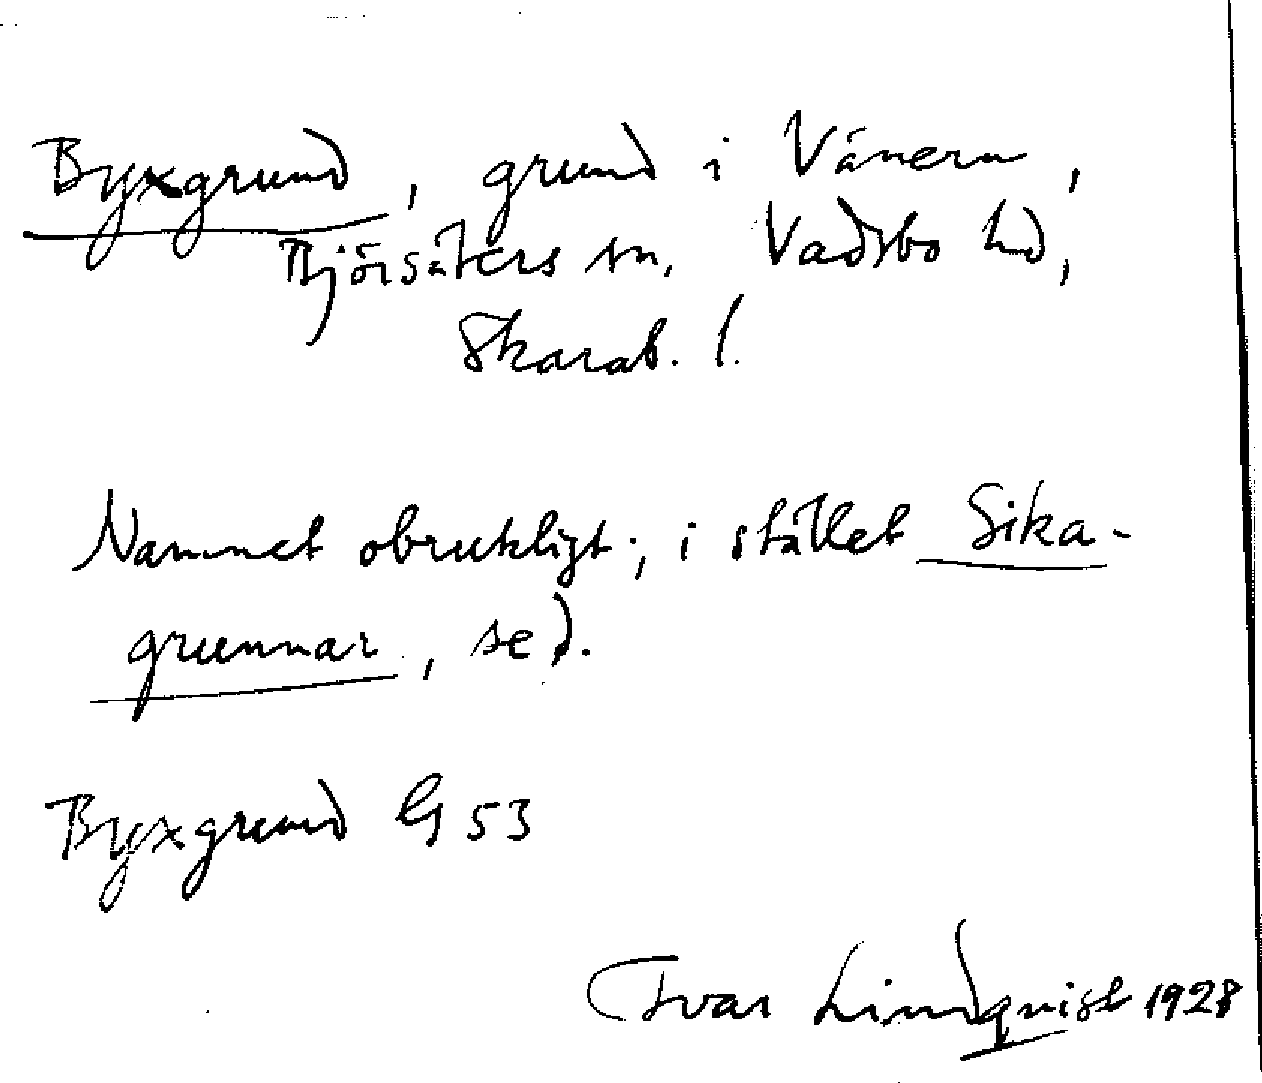 Byxgrund, grund i Vänern,
Björsäters sn, Vadsbo hd,
Skarab. l.
Namnet obrukligt; i stället Sika-
grunnar, se d.
Byxgrund G 53
Ivar Lindquist 1928